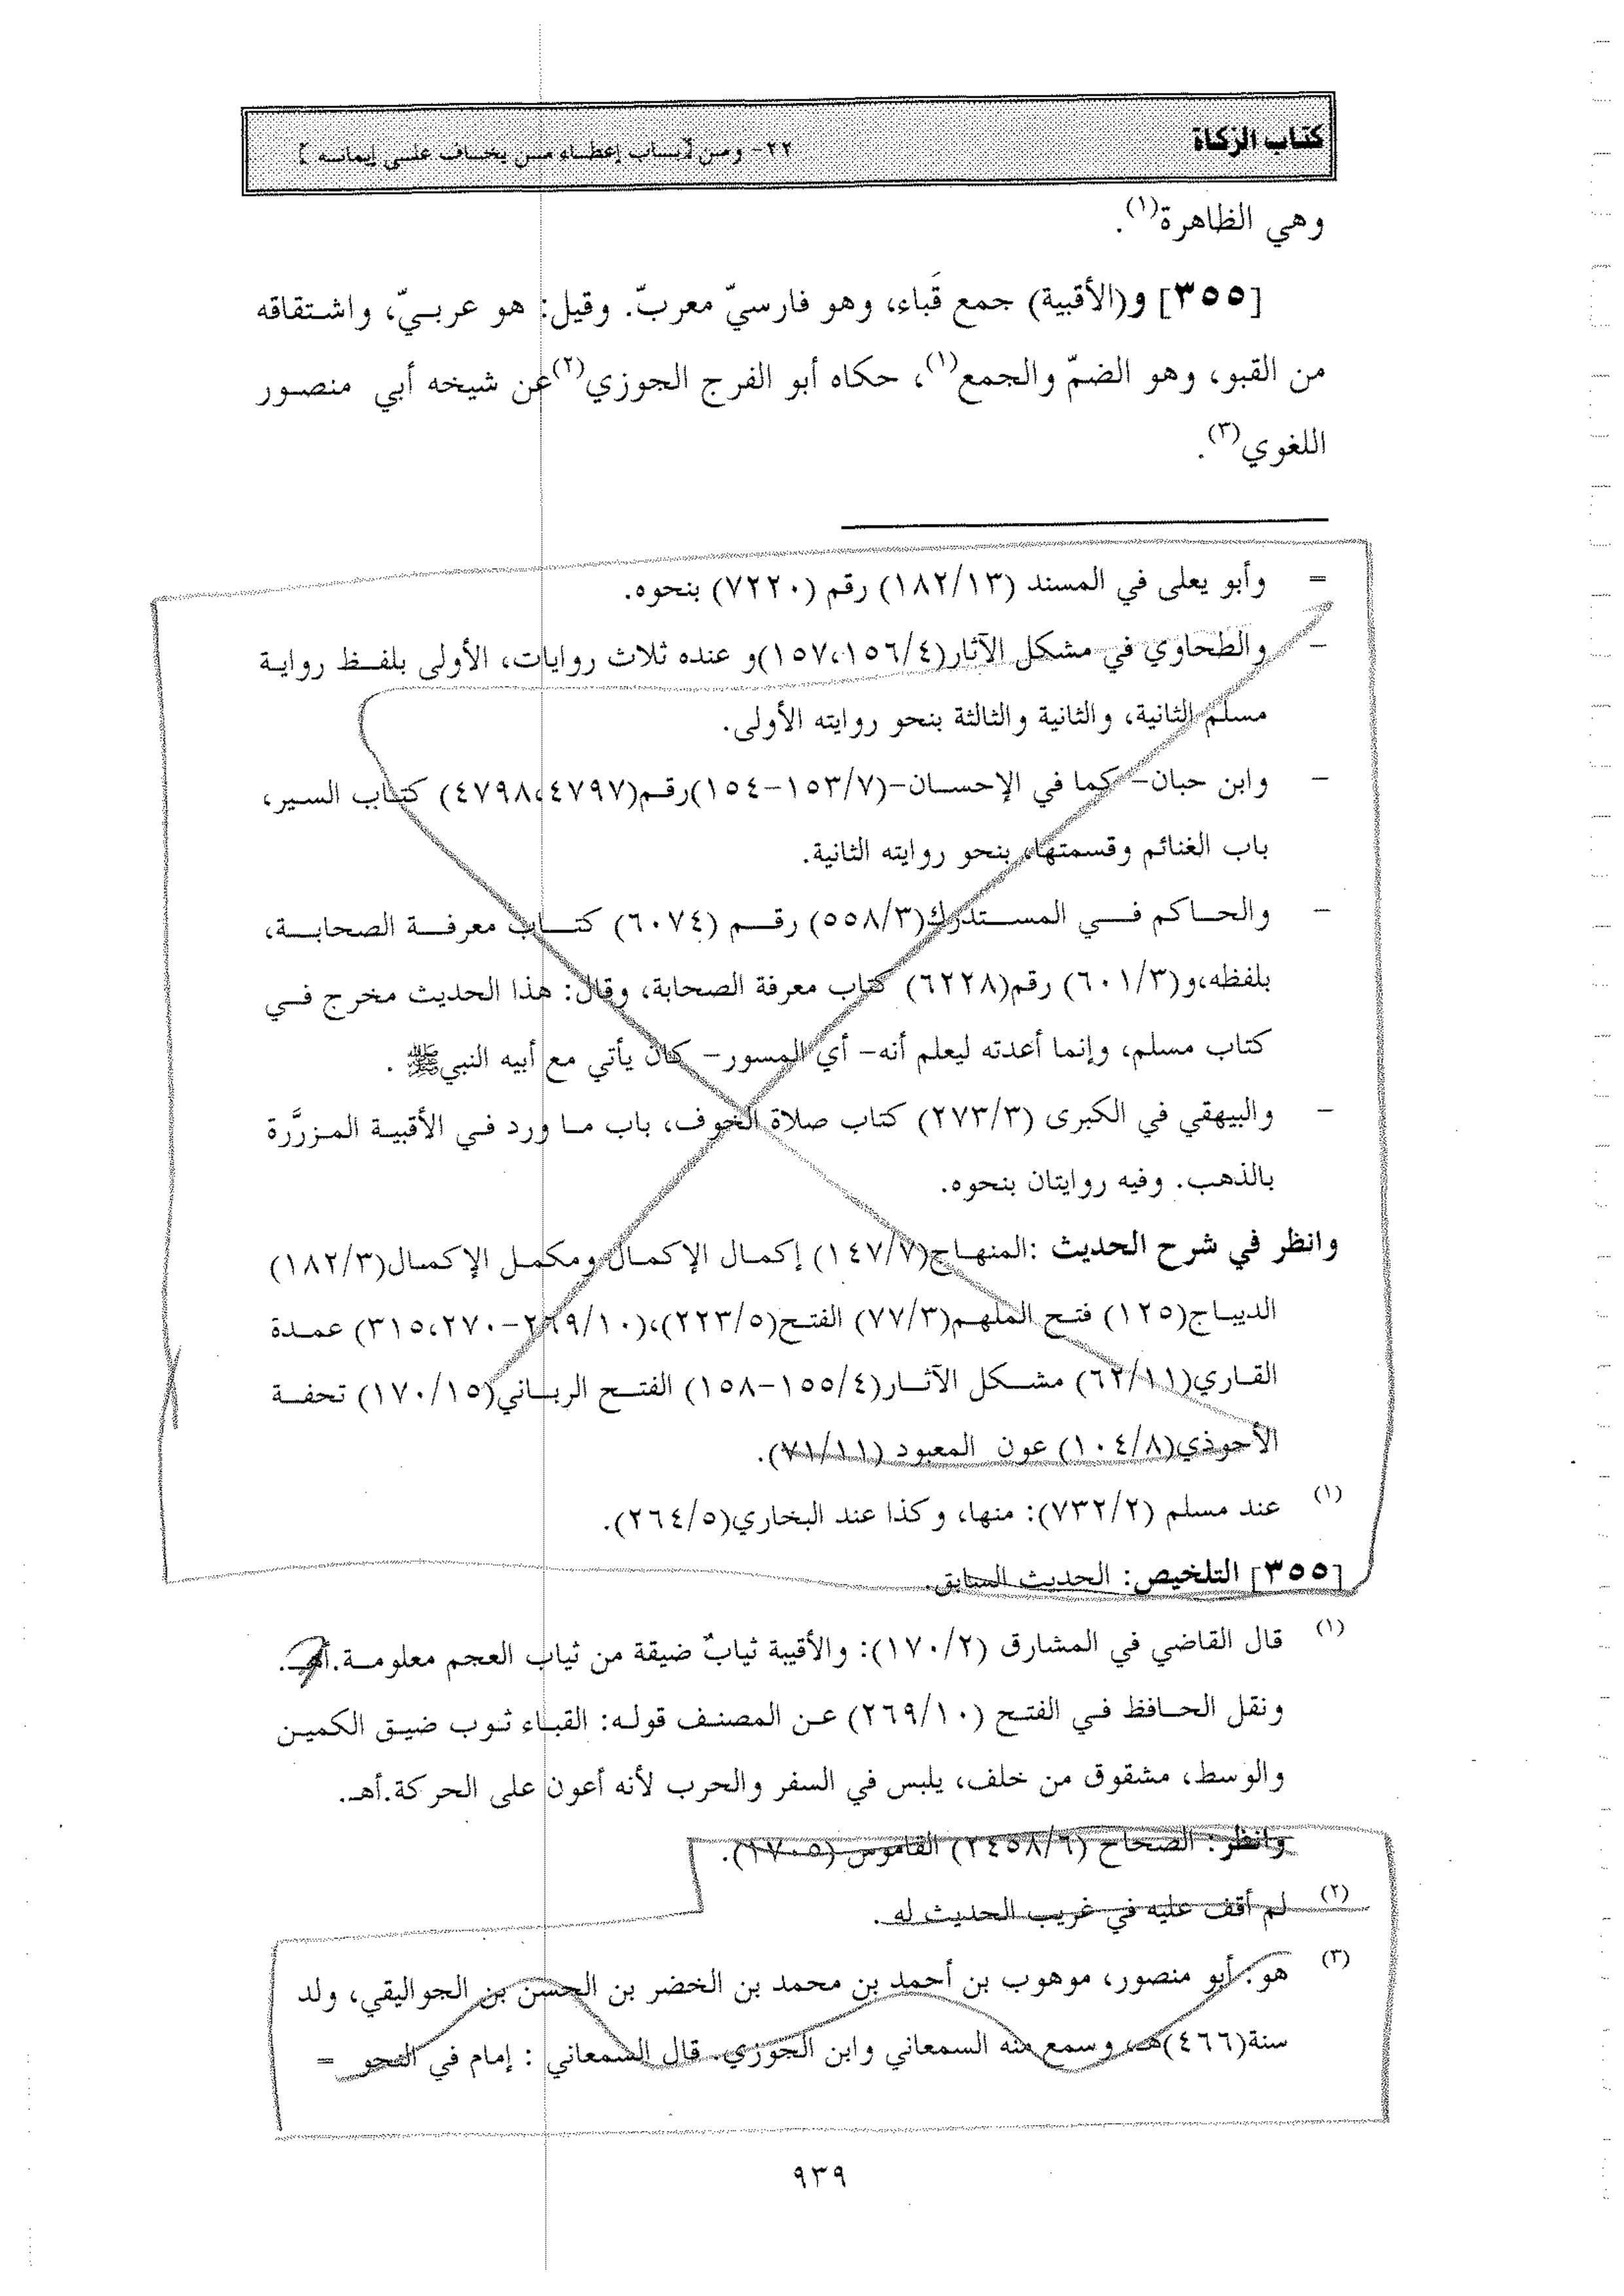 كتاب الزكاة
٢٢- ومن [باب إعطاء من يخاف على إيمانه]
وهي الظاهرة(١).
[٣٥٥] و(الأقبية) جمع قَباء، وهو فارسيّ معربّ. وقيل: هو عربيّ، واشتقاقه
من القبو، وهو الضمّ والجمع(١)، حكاه أبو الفرج الجوزي(٢)عن شيخه أبي منصور
اللغوي(٣).
= وأبو يعلى في المسند (١٨٢/١٣) رقم (٧٢٢٠) بنحوه.
– والطحاوي في مشكل الآثار(١٥٧،١٥٦/٤)و عنده ثلاث روايات، الأولى بلفظ رواية
مسلم الثانية، والثانية والثالثة بنحو روايته الأولى.
– وابن حبان– كما في الإحسان–(١٥٣/٧–١٥٤)رقم(٤٧٩٨،٤٧٩٧) كتاب السير،
باب الغنائم وقسمتها، بنحو روايته الثانية.
– والحاكم في المستدرك(٥٥٨/٣) رقم (٦٠٧٤) كتاب معرفة الصحابة،
بلفظه،و(٦٠١/٣) رقم(٦٢٢٨) كتاب معرفة الصحابة، وقال: هذا الحديث مخرج في
كتاب مسلم، وإنما أعدته ليعلم أنه– أي المسور– كان يأتي مع أبيه النبيﷺ .
– والبيهقي في الكبرى (٢٧٣/٣) كتاب صلاة الخوف، باب ما ورد في الأقبية المزرَّرة
بالذهب. وفيه روايتان بنحوه.
وانظر في شرح الحديث :المنهاج(١٤٧/٧) إكمال الإكمال ومكمل الإكمال(١٨٢/٣)
الديباج(١٢٥) فتح الملهم(٧٧/٣) الفتح(٢٢٣/٥)،(٢٦٩/١٠–٣١٥،٢٧٠) عمدة
القاري(٦٢/١١) مشكل الآثار(١٥٥/٤–١٥٨) الفتح الرباني(١٧٠/١٥) تحفة
الأحوذي(١٠٤/٨) عون المعبود (٧١/١١).
(١) عند مسلم (٧٣٢/٢): منها، وكذا عند البخاري(٢٦٤/٥).
[٣٥٥] التلخيص: الحديث السابق.
(١) قال القاضي في المشارق (١٧٠/٢): والأقبية ثيابٌ ضيقة من ثياب العجم معلومة.أهـ.
ونقل الحافظ في الفتح (٢٦٩/١٠) عن المصنف قوله: القباء ثوب ضيق الكمين
والوسط، مشقوق من خلف، يلبس في السفر والحرب لأنه أعون على الحركة.أهـ.
وانظر: الصحاح (٢٤٥٨/٦) القاموس (١٧٠٥).
(٢) لم أقف عليه في غريب الحديث له .
(٣) هو: أبو منصور، موهوب بن أحمد بن محمد بن الخضر بن الحسن بن الجواليقي، ولد
سنة(٤٦٦)هـ، وسمع منه السمعاني وابن الجوزي. قال السمعاني : إمام في النحو =
٩٣٩